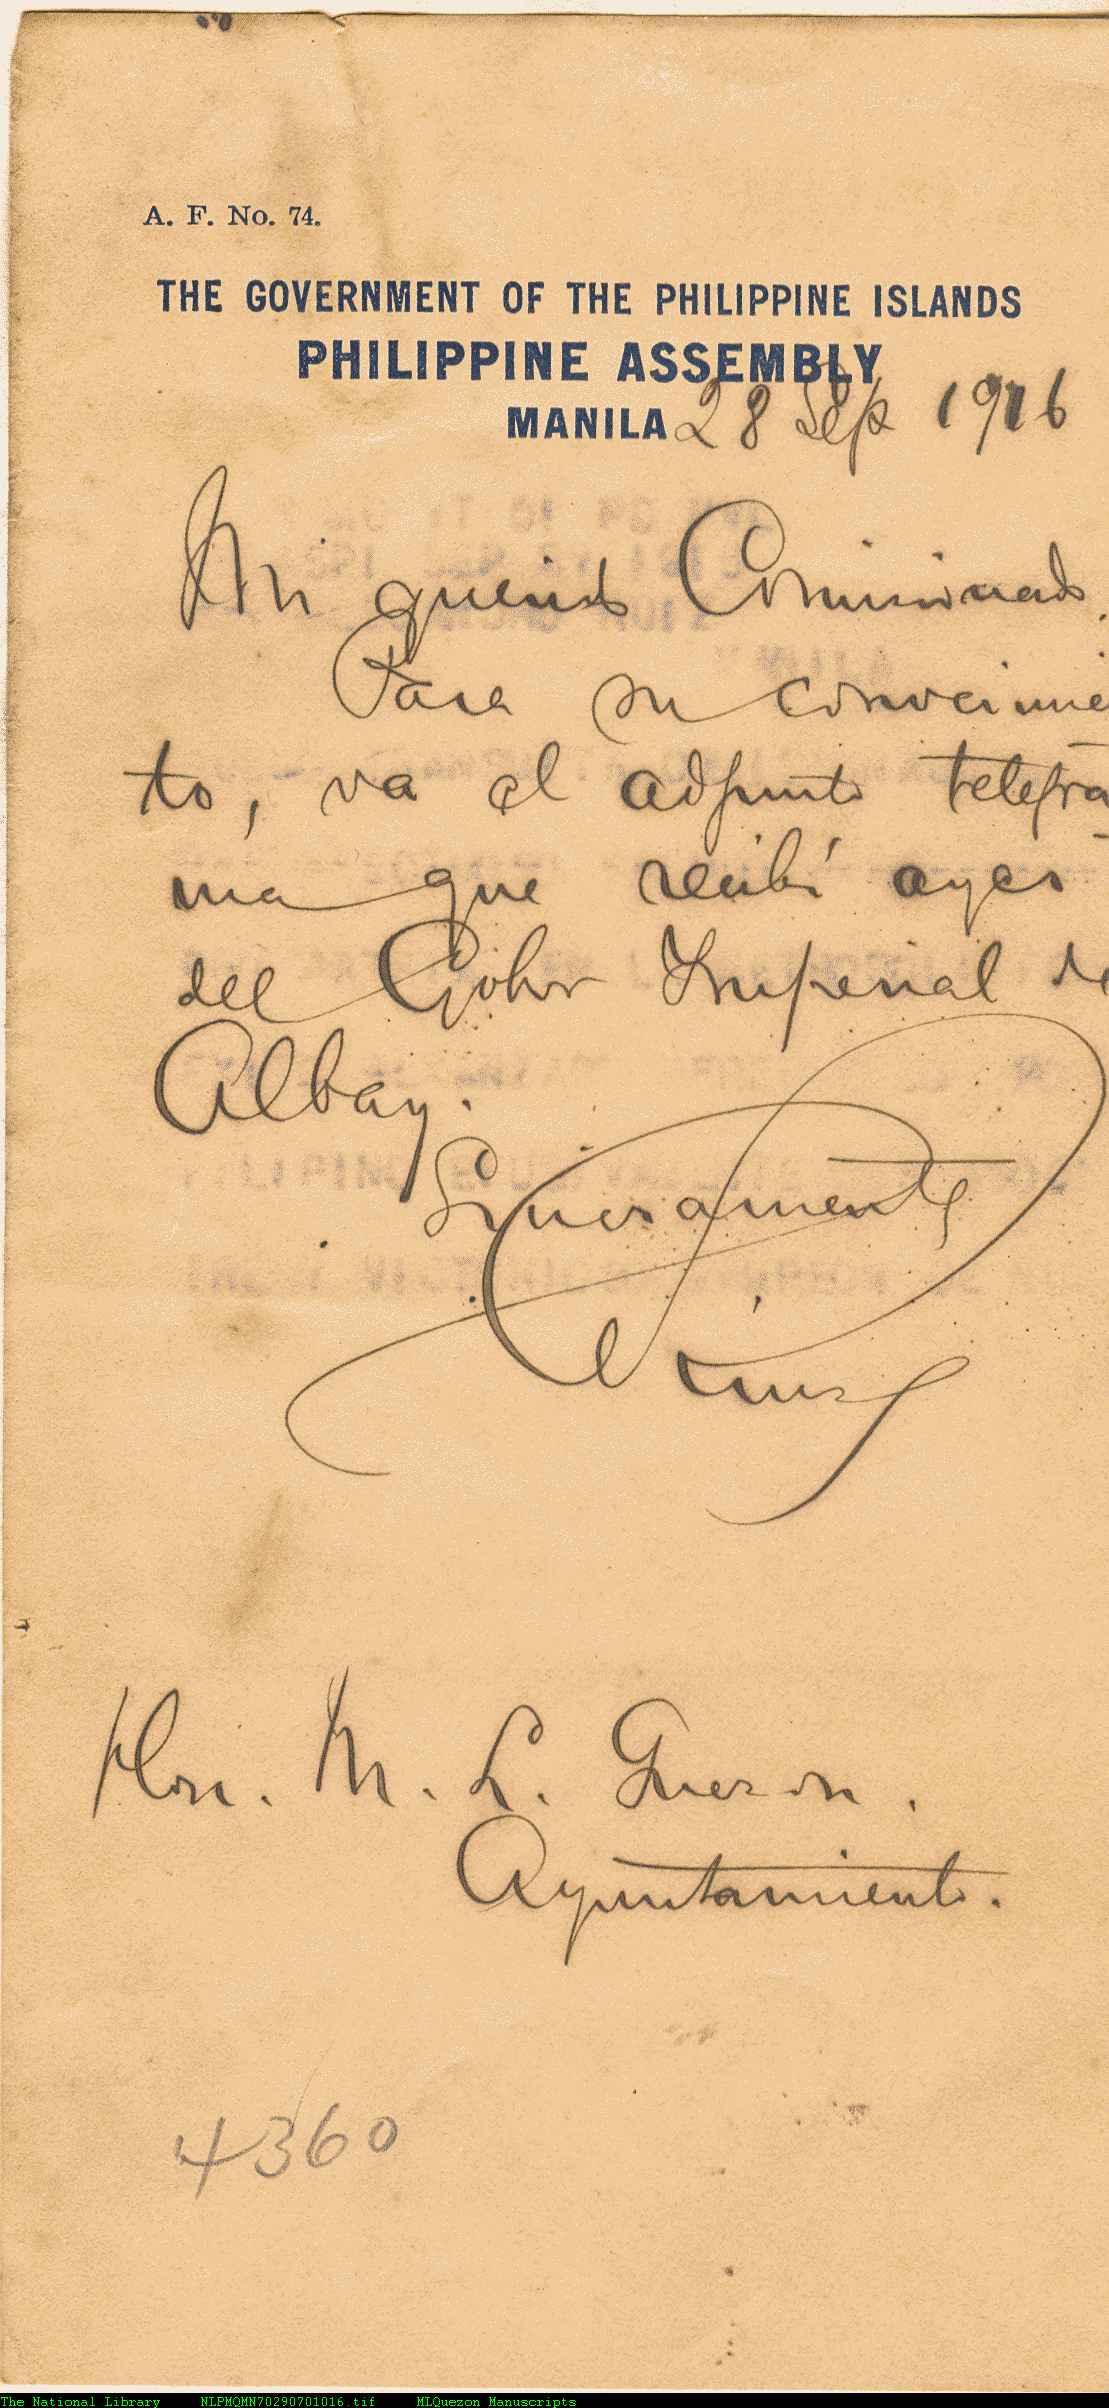 A. F. No. 74.
THE GOVERNMENT OF THE PHILIPPINE ISLANDS
PHILIPPINE ASSEMBLY
MANILA 28 Sep 1916
Mi querido Comisionado.
Para su conocimie
to, va el adjunto telegra
ma que recibí ayer
del Gobor Imperial de
Albay.
Sinceramente
Hon. M. L. Quezon.
Ayuntamiento.
4360
The National Library NLPMQMN70290701016.tif MLQuezon Manuscripts